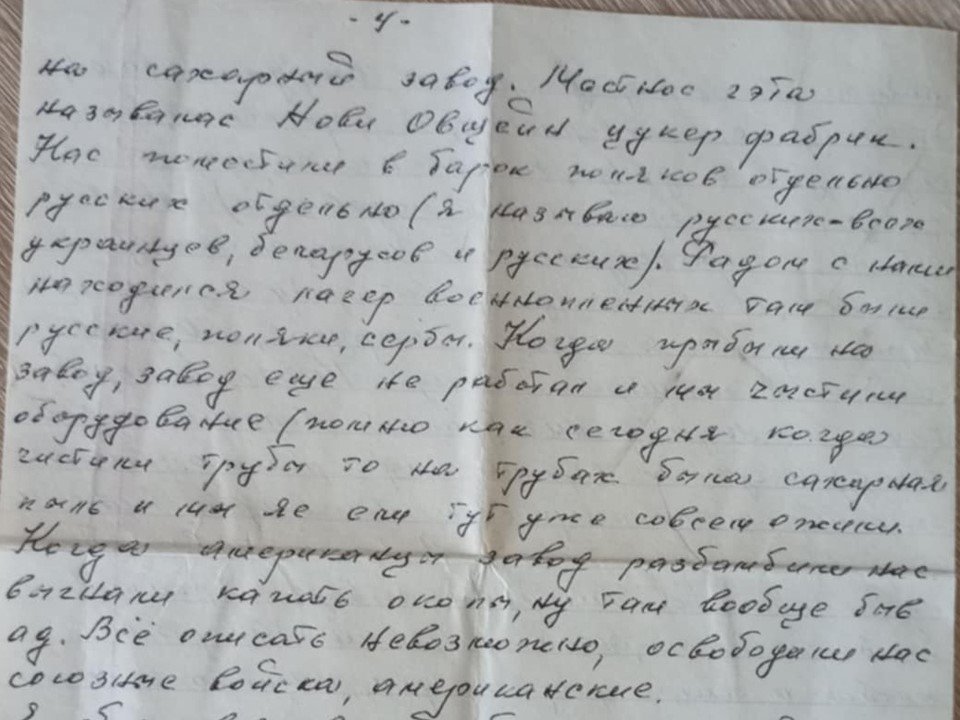 - 4 -
на сахарный завод. Мастнос гэта
называлас Нови Овщейн цукер фабрик.
Нас поместили в барок поляков отдельно
русских отдельно (я называю русских - всех
украинцев, беларусов и русских). Радом с нами
находился лагер военнопленных там были
русские, поляки, сербы. Когда прыбыли на
завод, завод еще не работал и мы чыстили
оборудование (помню как сегодня когда
чистили трубы то на трубах была сахарная
пыль и мы яе ели тут уже совсем ожили.
Когда американцы завод разбамбили нас
выгнали капать окопы, ну там вообще быв
ад. Всё описать невозможно, освободили нас
союзные войска, американские.